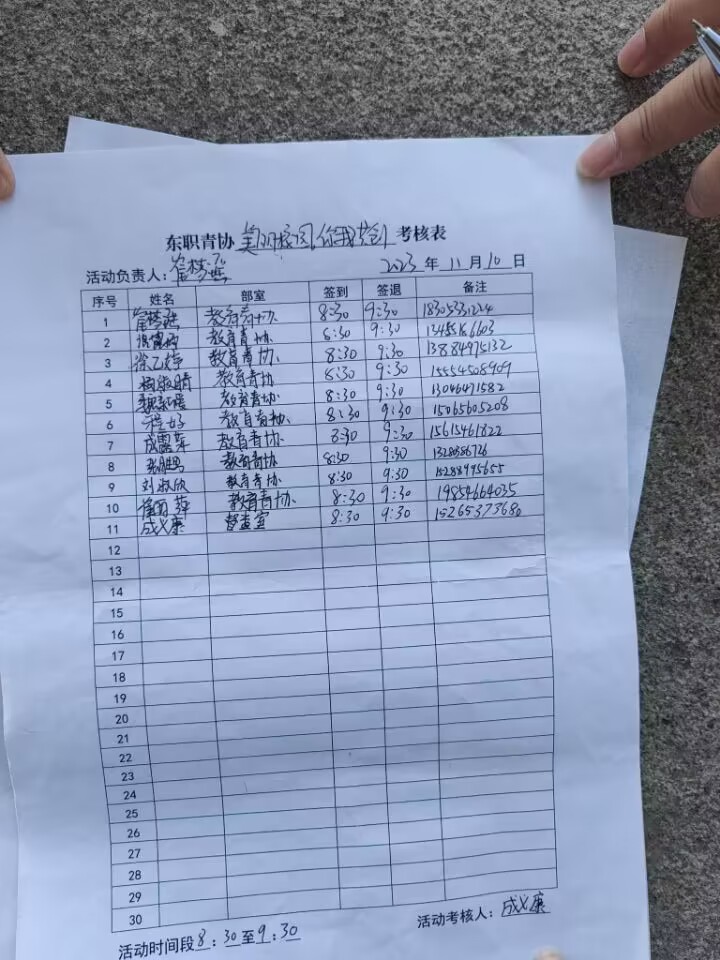 东职青协 美丽校园,你我共创 考核表
活动负责人: 2023 年 11 月 10 日
序号 姓名 部室 签到 签退 备注
1 教育青协 8:30 9:30
2 教育青协 8:30 9:30
3 教育青协 8:30 9:30 13884975132
4 教育青协 8:30 9:30 15554508909
5 教育青协 8:30 9:30 13046471582
6 程好 教育青协 8:30 9:30 15065605208
7 成露菲 教育青协 8:30 9:30 15615461822
8 教育青协 8:30 9:30
9 刘淑欣 教育青协 8:30 9:30 15288995655
10 教育青协 8:30 9:30 19854664035
11 成义康 督查室 8:30 9:30 15265373680
12
13
14
15
16
17
18
19
20
21
22
23
24
25
26
27
28
29
30
活动时间段 8:30至9:30 活动考核人: 成义康